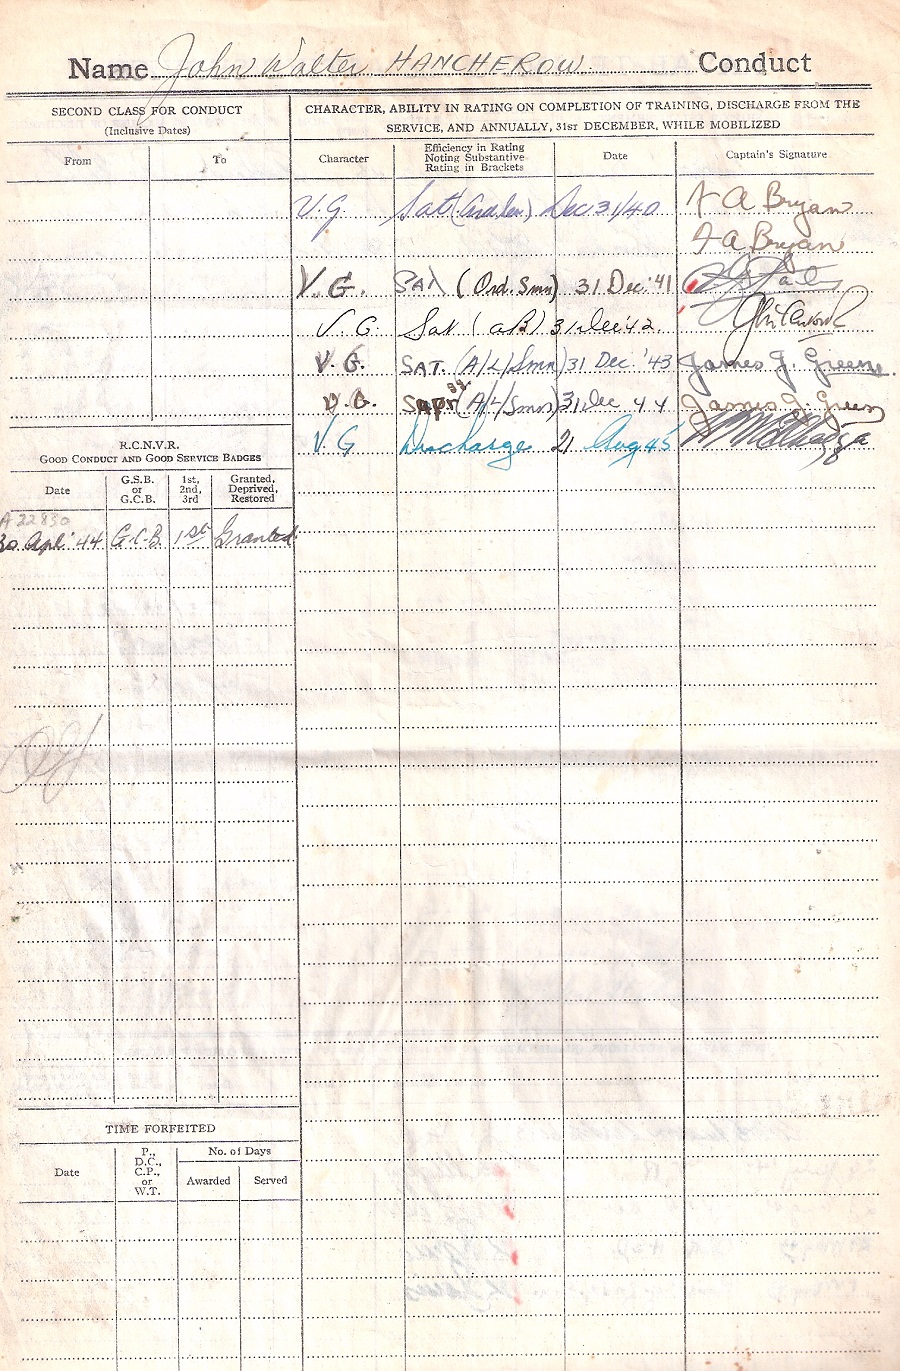 Name John Walter HANCHEROW Conduct
SECOND CLASS FOR CONDUCT
(Inclusive Dates)
From To
CHARACTER, ABILITY IN RATING ON COMPLETION OF TRAINING, DISCHARGE FROM THE
SERVICE, AND ANNUALLY, 31ST DECEMBER, WHILE MOBILIZED
Character
Efficiency in Rating
Noting Substantive
Rating in Brackets
Date
Captain's Signature
V.G. Sat Dec 31/40 A Bryan
A Bryan
V.G. SAT (Ord. Smn) 31 Dec. '41
V.G. Sat (AB) 31 Dec '42
V.G. SAT. (A/L/Smn) 31 Dec. '43 James J. Greene
V.G. (A/L/Smn) 31 Dec 44 James J. Green
V.G Discharge 21 Aug 45
R.C.N.V.R.
GOOD CONDUCT AND GOOD SERVICE BADGES
Date
G.S.B.
or
G.C.B.
1st,
2nd,
3rd
Granted,
Deprived,
Restored
A 22830
30 Apl '44 G.C.B. 1st Granted
TIME FORFEITED
Date
P.,
D.C.,
C.P.,
or
W.T.
No. of Days
Awarded Served